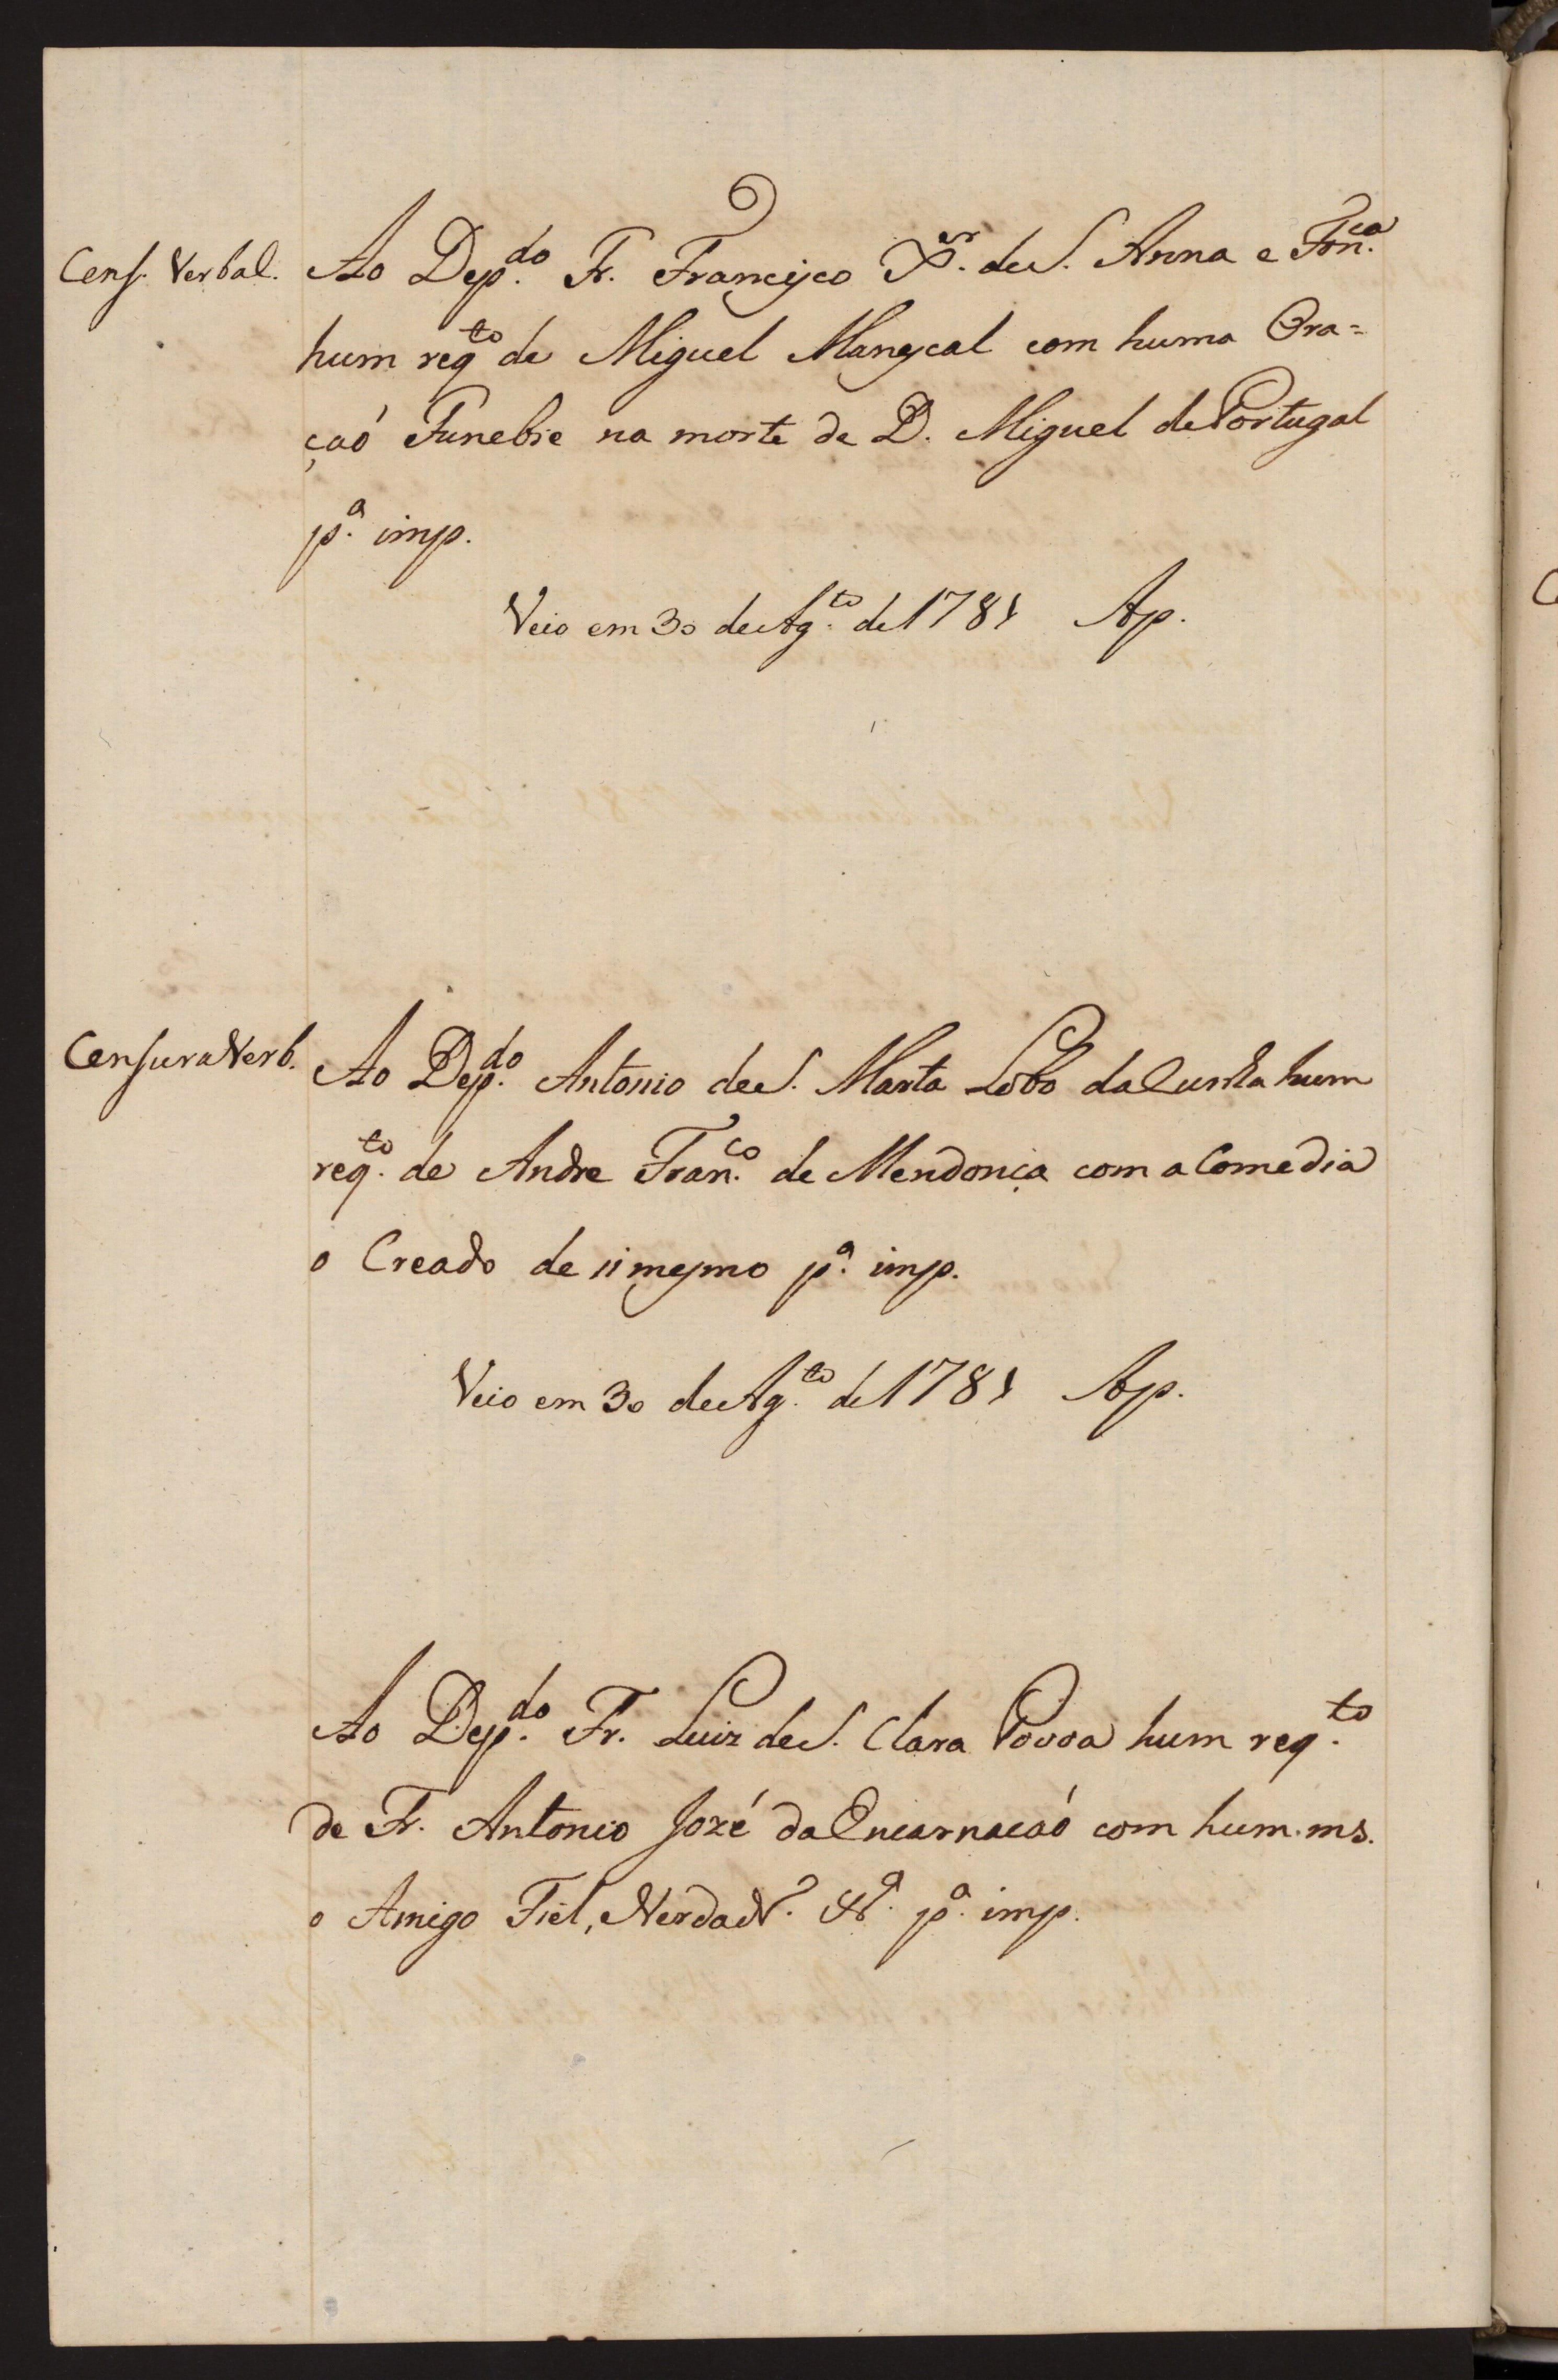 Cens. Verbal. Ao Dep.do Fr. Francisco X.er de S. Anna e Fon.ca
hum req.to de Miguel Manescal com huma Ora=
çaõ Funebre na morte de D. Miguel de Portugal
p.a imp.
Veio em 30 de Ag.to de 1781 Ap.
Censura Verb. Ao Dep.do Antonio de S. Marta Lobo da Cunha hum
req.to de Andre Fran.co de Mendonça com a Comedia
o Creado de si mesmo p.a imp.
Veio em 30 de Ag.to de 1781 Ap.
Ao Dep.do Fr. Luiz de S. Clara Povoa hum req.to
de Fr. Antonio Jozé da Encarnacaõ com hum ms.
o Amigo Fiel, Verdad.o &.a p.a imp.